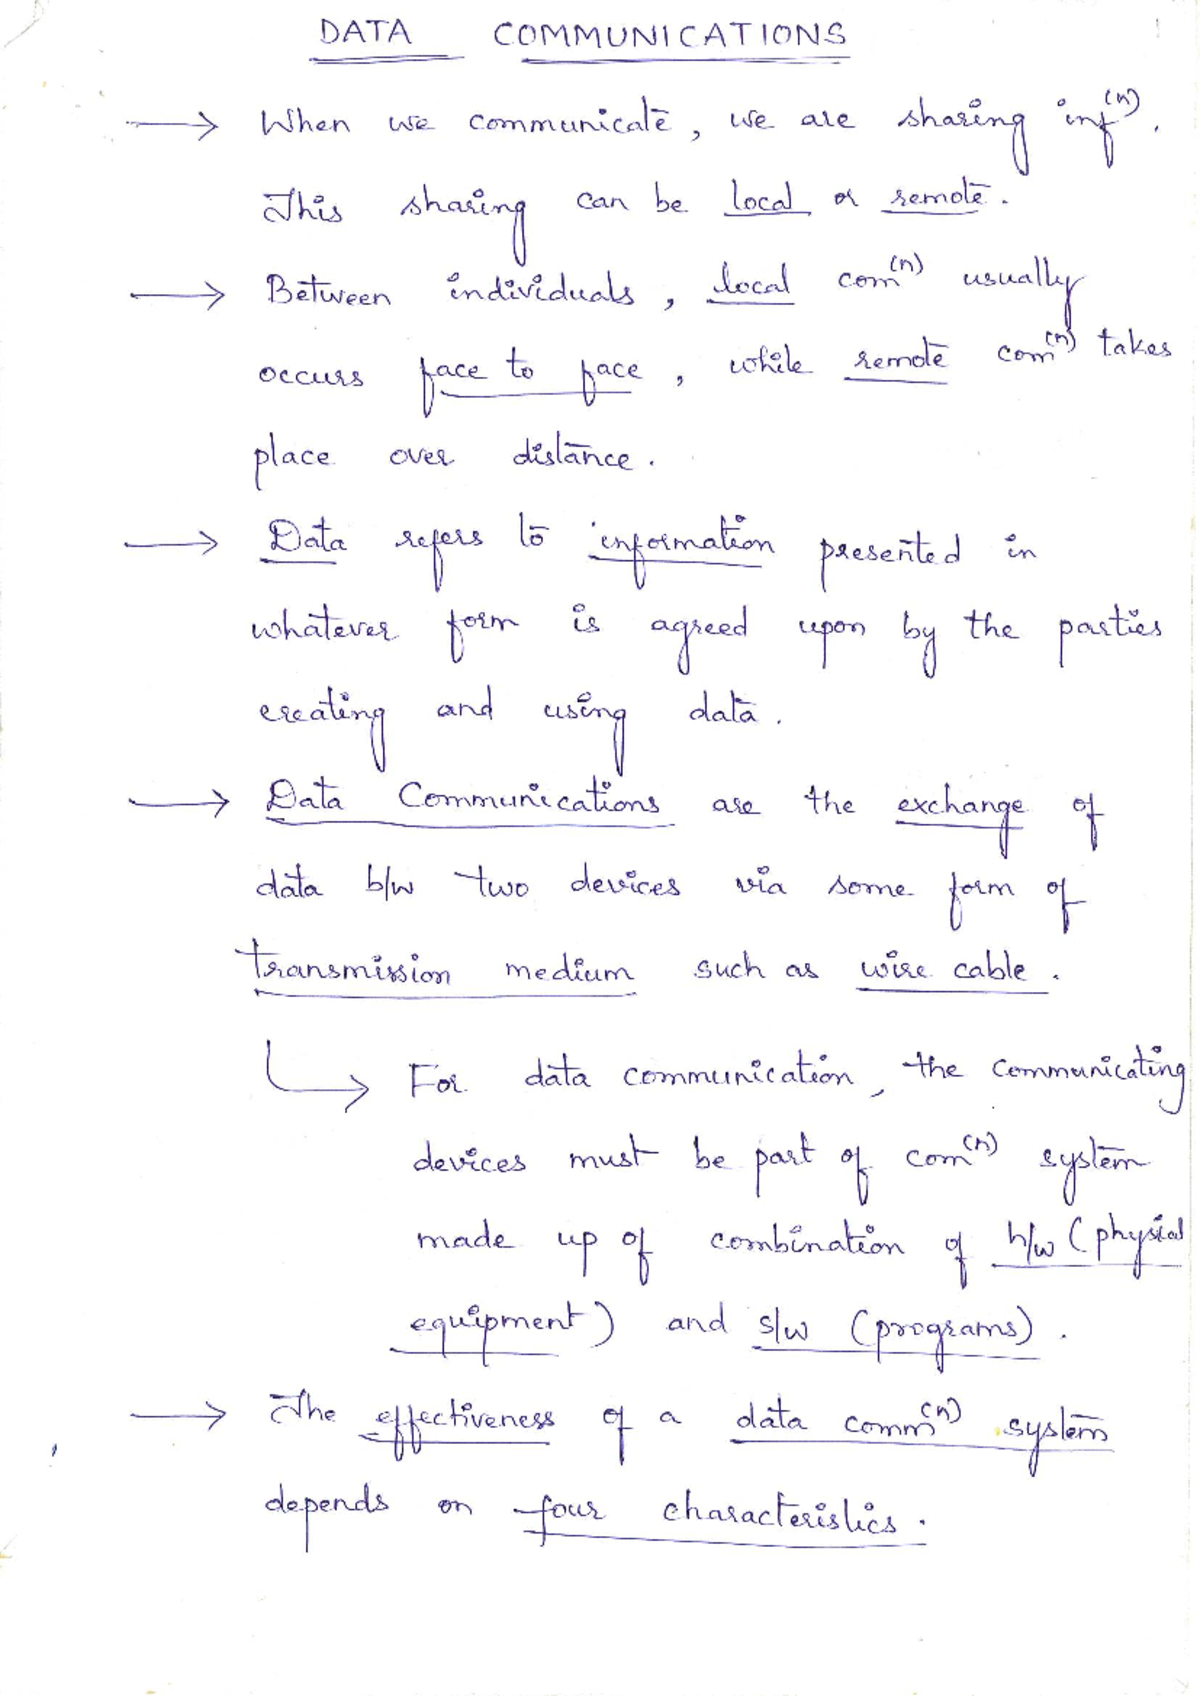 DATA COMMUNICATIONS
→ When we communicate, we are sharing inf(n).
This sharing can be local or remote.
→ Between individuals, local com(n) usually
occurs face to face, while remote com(n) takes
place over distance.
→ Data refers to information presented in
whatever form is agreed upon by the parties
creating and using data.
→ Data Communications are the exchange of
data b/w two devices via some form of
transmission medium such as wire cable.
↳ For data communication, the communicating
devices must be part of com(n) system
made up of combination of h/w (physial
equipment) and s/w (programs).
→ The effectiveness of a data comm(n) system
depends on four characteristics.